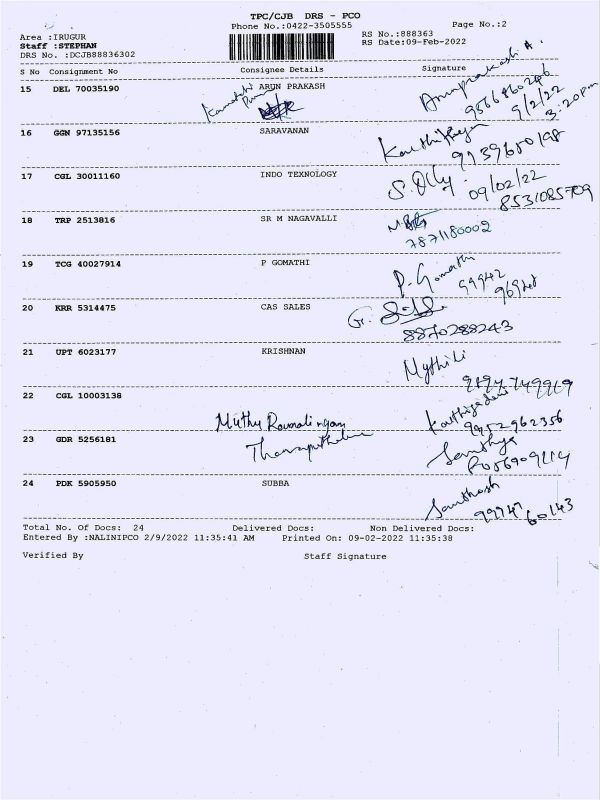 TPC/CJB DRS - PCO
Phone No.:0422-3505555
Page No.:2
Area :IRUGUR
RS No.:888363
Staff :STEPHAN
RS Date:09-Feb-2022
DRS No. :DCJB88836302
S No Consignment No Consignee Details Signature
15 DEL 70035190 ARUN PRAKASH Arunprakash A.
9566460246
9/2/22
3:20pm
16 GGN 97135156 SARAVANAN Karthikeyan
9139650198
17 CGL 30011160 INDO TEXNOLOGY
09/02/22
8531085709
18 TRP 2513816 SR M NAGAVALLI
7871180002
19 TCG 40027914 P GOMATHI P. Gomathi
99942
20 KRR 5314475 CAS SALES
8870288243
21 UPT 6023177 KRISHNAN Mythili
22 CGL 10003138 Muthu Ramalingam Karthigadevi
9952962356
23 GDR 5256181 Santhya
24 PDK 5905950 SUBBA Santhosh
99947 60143
Total No. Of Docs: 24 Delivered Docs: Non Delivered Docs:
Entered By :NALINIPCO 2/9/2022 11:35:41 AM Printed On: 09-02-2022 11:35:38
Verified By Staff Signature